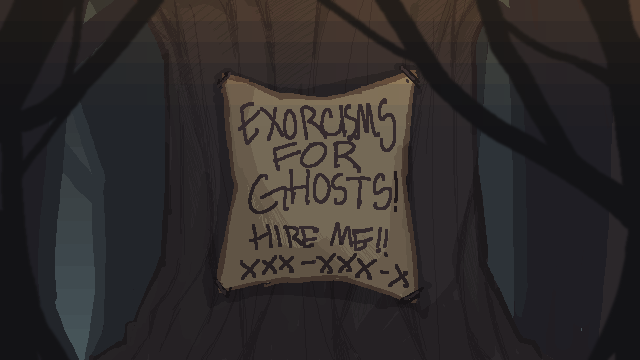 EXORCISMS
FOR
GHOSTS!
HIRE ME!!
XXX-XXX-X